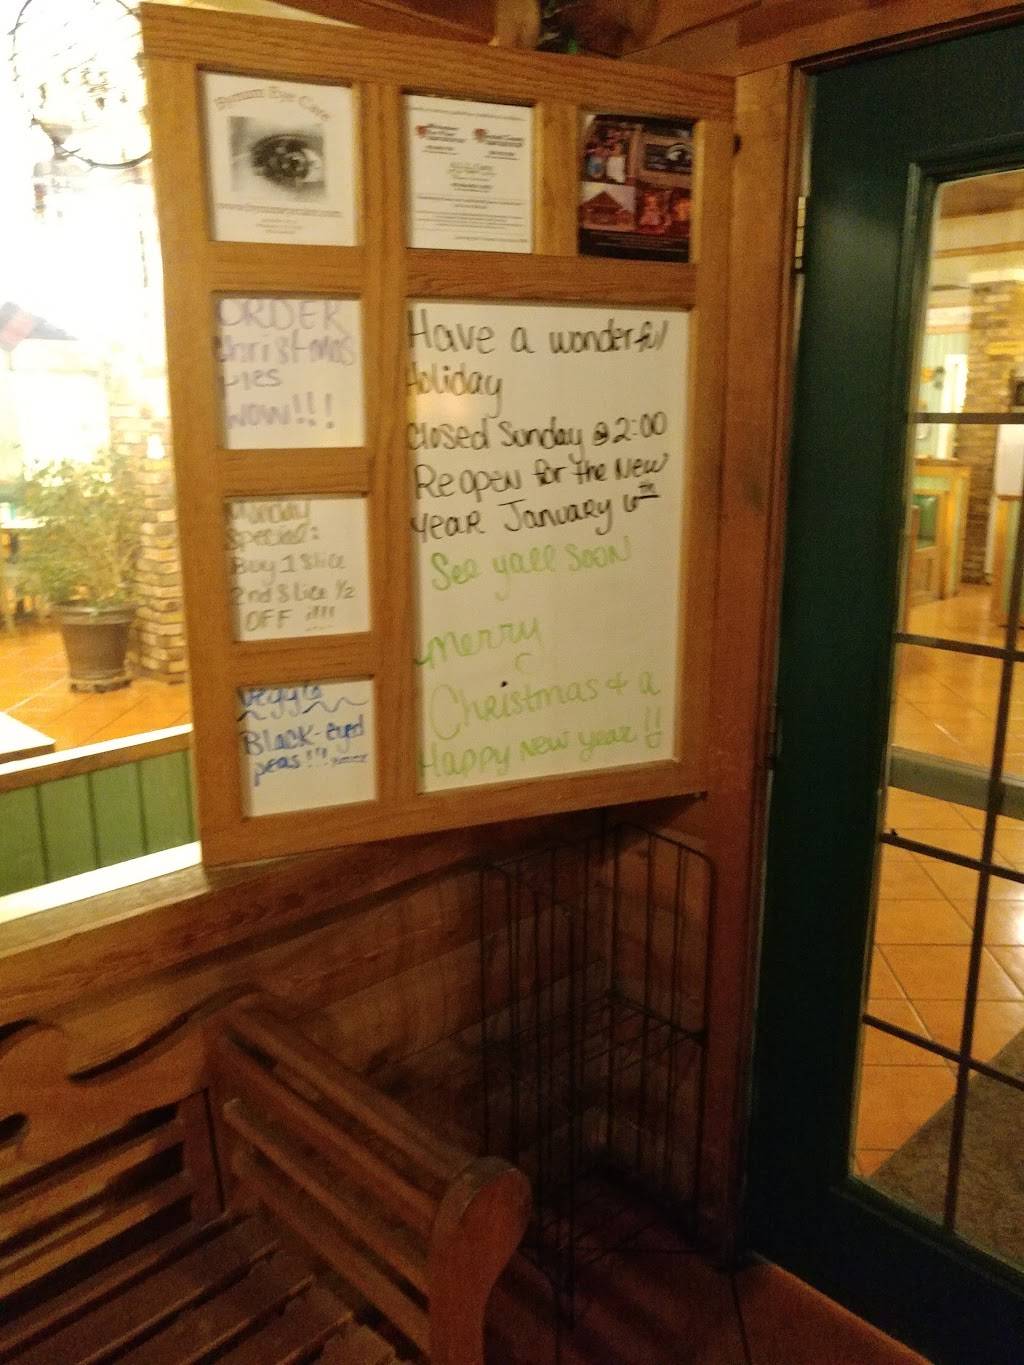 Bynum Eye Care
ORDER
Christmas
Pies
NOW!!!
Monday
Special:
Buy 1 Slice
2nd Slice 1/2
OFF !!!!
Black-eyed
peas!!!
Have a wonderful
Holiday
Closed Sunday @ 2:00
Reopen for the New
Year January 6th
See yall soon
Merry
Christmas & a
Happy New year!!